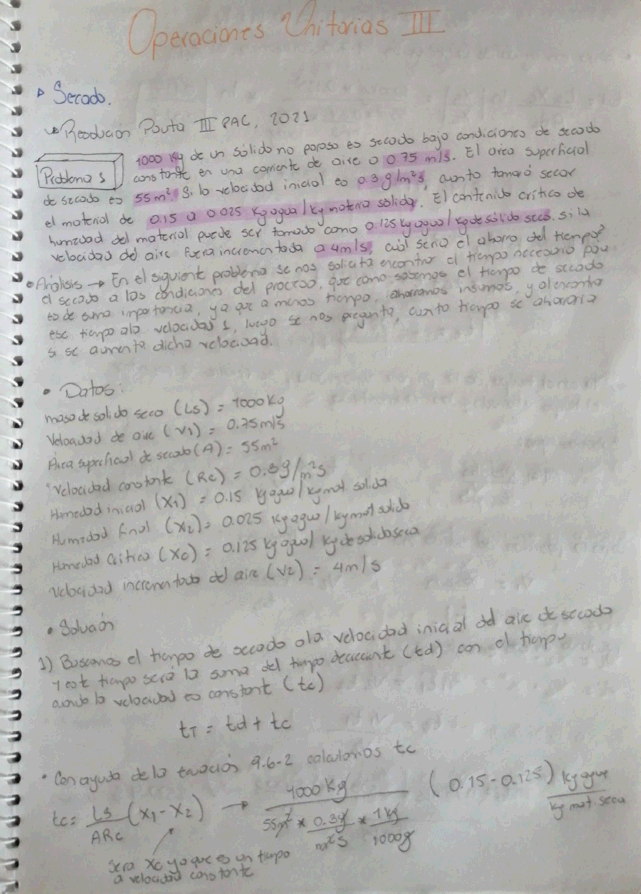 Operaciones Unitarias III
▸ Secado.
Resolución Pauta III PAC, 2021
Problema 1
1000 kg de un sólido no poroso es secado bajo condiciones de secado
constante en una corriente de aire a 0.75 m/s. El area superficial
de secado es 55m². Si la velocidad inicial es 0.3 g/m²s, cuanto tomará secar
el material de 0.15 a 0.025 Kg agua/kg materia solida. El contenido crítico de
humedad del material puede ser tomado como 0.125 kg agua/kg de sólido seco. Si la
velocidad del aire fuera incrementada a 4m/s, cuál seria el ahorro del tiempo?
• Análisis → En el siguiente problema se nos solicita encontrar el tiempo necesario para
el secado a las condiciones del proceso, que como sabemos el tiempo de secado
es de suma importancia, ya que a menos tiempo, ahorramos insumos, y al encontrar
ese tiempo a la velocidad 1, luego se nos pregunta, cuanto tiempo se ahorraria
si se aumenta dicha velocidad.
• Datos:
masa de solido seco (Ls) = 1000kg
Velocidad de aire (V1) = 0.75m/s
Área superficial de secado (A) = 55m²
Velocidad constante (Rc) = 0.3g/m²s
Humedad inicial (X1) = 0.15 kg agua/kg mat solida
Humedad final (X2) = 0.025 Kg agua/kg mat solido
Humedad Critica (Xc) = 0.125 kg agua/kg de solido seco
Velocidad incrementada del aire (V2) = 4m/s
• Solución
1) Buscamos el tiempo de secado a la velocidad inicial del aire de secado
y este tiempo será la suma del tiempo decreciente (td) con el tiempo
cuando la velocidad es constante (tc)
tT = td + tc
• Con ayuda de la ecuación 9.6-2 calculamos tc
tc = Ls/ARc (X1 - X2) → 1000 Kg / 55m² * 0.3g/m²s * 1 kg/1000g (0.15 - 0.125) kg agua/kg mat seca
Sera Xc ya que es un tiempo
a velocidad constante